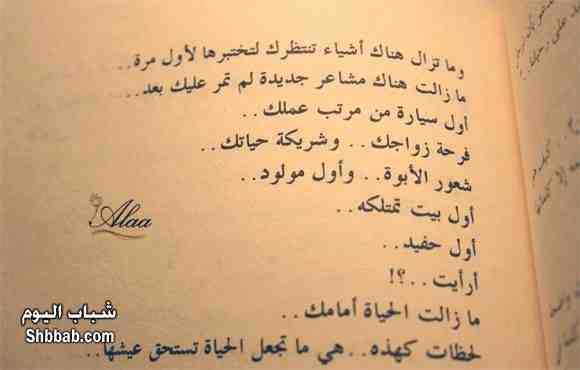 وما تزال هناك أشياء تنتظرك لتختبرها لأول مرة..
ما زالت هناك مشاعر جديدة لم تمر عليك بعد..
أول سيارة من مرتب عملك..
فرحة زواجك.. وشريكة حياتك..
شعور الأبوة.. وأول مولود..
أول بيت تمتلكه..
أول حفيد..
أرأيت..؟!
ما زالت الحياة أمامك..
لحظات كهذه.. هي ما تجعل الحياة تستحق عيشها..
Alaa
شباب اليوم
Shbbab.com